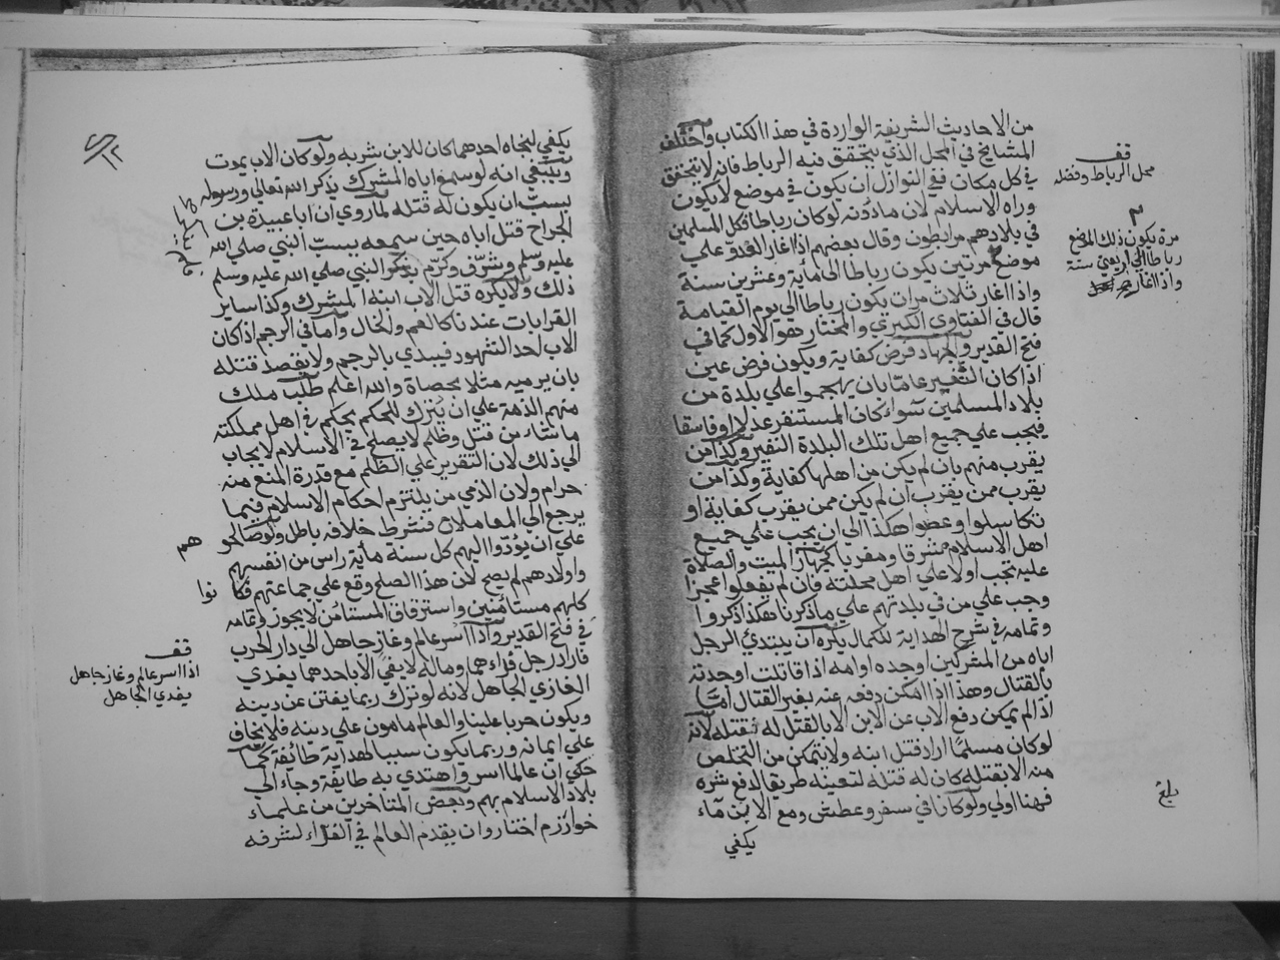 من الاحاديث الشريفة الواردة في هذا الكتاب واختلف
المشايخ في المحل الذي يتحقق فيه الرباط فانه لا يتحقق
في كل مكان ففي النوازل ان يكون في موضع لا يكون
وراه الاسلام لان مادونه لو كان رباطا فكل المسلمين
في بلادهم مرابطون وقال بعضهم اذا اغار العدو علي
موضع مرتين يكون رباطا الي مأية وعشرين سنة
واذا اغار ثلاث مرات يكون رباطا الي يوم القيامة
قال في الفتاوي الكبري والمختار هو الاول كما في
فتح القدير والجهاد فرض كفاية ويكون فرض عين
اذا كان النفير عاما بان يهجموا علي بلدة من
بلاد المسلمين سواء كان المستنفر عدلا او فاسقا
فيجب علي جميع اهل تلك البلدة النفير وكذا من
يقرب منهم بان لم يكن من اهلها كفاية وكذا من
يقرب ممن يقرب ان لم يكن ممن يقرب كفاية او
تكاسلوا وعصوا هكذا الي ان يجب علي جميع
اهل الاسلام مشرقا ومغربا كجهاز الميت والصلاة
عليه تجب اولا علي اهل محلته فان لم يفعلوا عجزا
وجب علي من في بلدتهم علي ماذكرنا هكذا ذكروا
وتمامه في شرح الهداية للكمال يكره ان يبتدئ الرجل
اباه من المشركين او جده او امه اذا قاتلت او جدته
بالقتال وهذا اذا امكن دفعه عنه بغير القتال اما
اذا لم يمكن دفع الاب عن الابن الا بالقتل له فيقتله لانه
لو كان مسلما اراد قتل ابنه ولا يتمكن من التخلص
منه الا بقتله كان له قتله لتعينه طريقا لدفع شره
فهنا اولي ولو كانا في سفر وعطش ومع الابن ماء
يكفي
قف
محل الرباط وفضله
مرة يكون ذلك الموضع
رباطا الي اربعين سنة
واذا اغار
بلغ
يكفي لنجاه احدهما كان للابن شربه ولو كان الاب يموت
وينبغي انه لو سمع اباه المشرك يذكر الله تعالي ورسوله
بسب ان يكون له قتله لما روي ان ابا عبيدة بن
الجراح قتل اباه حين سمعه يسب النبي صلي الله
عليه وسلم وشرف وكرم بذكر النبي صلي الله عليه وسلم
ذلك ولا يكره قتل الاب ابنه المشرك وكذا ساير
القرابات عندنا كالعم والخال واما في الرجم اذا كان
الاب احد الشهود فيبدي بالرجم ولا يقصد قتله
بان يرميه مثلا بحصاة والله اعلم طلب ملك
منهم الذمة علي ان يترك للحكم بحكم في اهل مملكته
ما شاء من قتل وظلم لا يصلح في الاسلام لا يجاب
الي ذلك لان التقرير علي الظلم مع قدرة المنع منه
حرام ولان الذمي من يلتزم احكام الاسلام فيما
يرجع الي المعاملات فشرط خلافه باطل ولو صالحو
هم
علي ان يؤدوا اليهم كل سنة مأية راس من انفسهم
واولادهم لم يصح لان هذا الصلح وقع علي جماعتهم فكا
نوا
كلهم مستامنين واسترقاق المستامن لا يجوز وتمامه
في فتح القدير واذا اسر عالم وغاز جاهل الي دار الحرب
فاراد رجل فداءهما وماله لا يفي الا باحدهما يفدي
الغازي الجاهل لانه لو ترك ربما يفتن عن دينه
ويكون حربا علينا والعالم مامون علي دينه فلا يخاف
علي ايمانه وربما يكون سببا لهداية طائفة كما
حكي ان عالما اسر واهتدي به طايفة وجاء الي
بلاد الاسلام بهم وبعض المتاخرين من علماء
خوارزم اختاروا ان يقدم العالم في الفداء لشرفه
قف
اذا اسر عالم وغاز جاهل
يفدي الجاهل